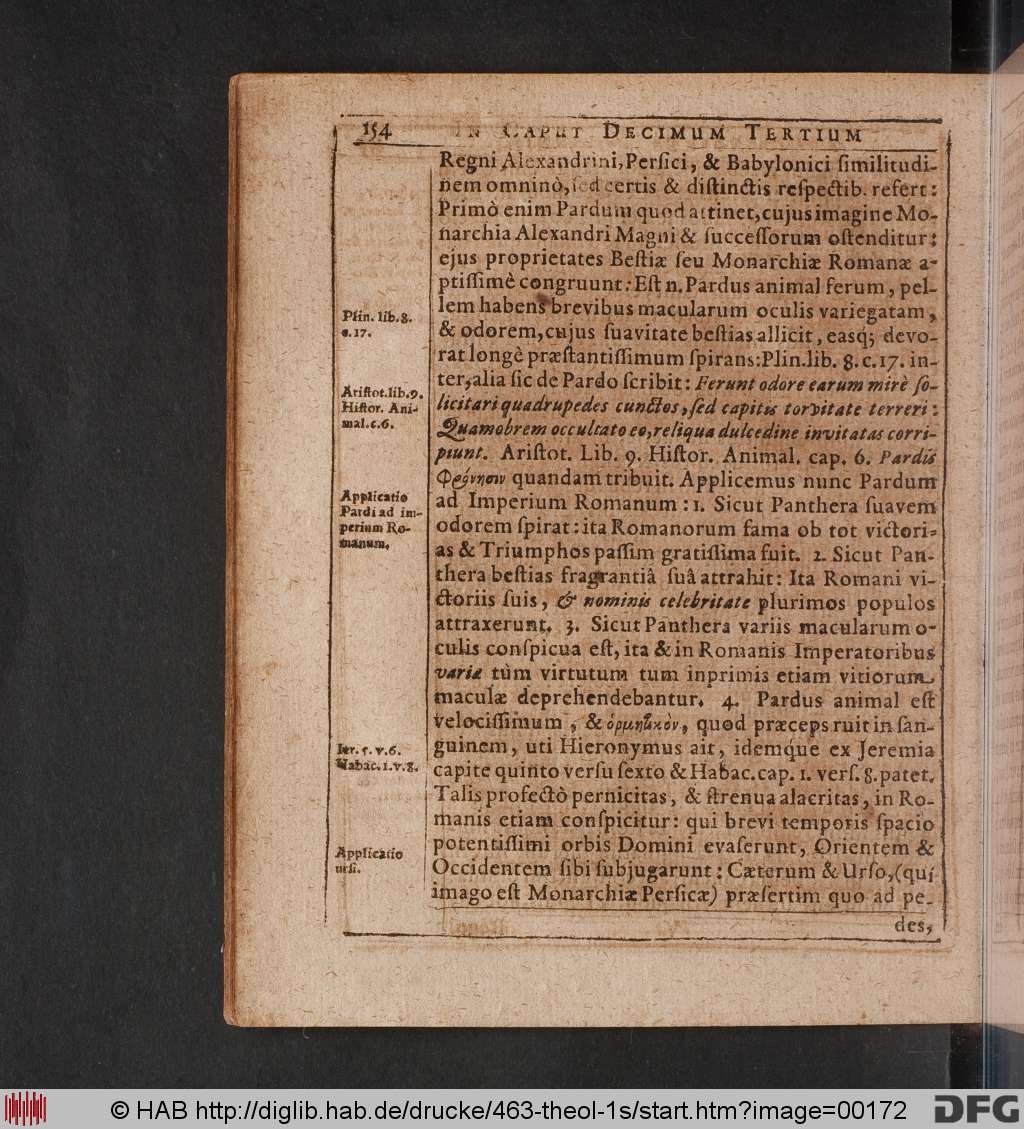 154 IN CAPUT DECIMUM TERTIUM
Regni Alexandrini, Persici, & Babylonici similitudi-
nem omninò, sed certis & distinctis respectib. refert:
Primò enim Pardum quod attinet, cujus imagine Mo-
narchia Alexandri Magni & successorum ostenditur:
ejus proprietates Bestiæ seu Monarchiæ Romanæ a-
ptissimè congruunt: Est n. Pardus animal ferum, pel-
lem habens brevibus macularum oculis variegatam,
& odorem, cujus suavitate bestias allicit, easq; devo-
rat longè præstantissimum spirans: Plin. lib. 8. c. 17. in-
ter, alia sic de Pardo scribit: Ferunt odore earum mirè so-
licitari quadrupedes cunctos, sed capitis torvitate terreri:
Quamobrem occultato eo, reliqua dulcedine invitatas corri-
piunt. Aristot. Lib. 9. Histor. Animal. cap. 6. Pardis
Φρόνησιν quandam tribuit. Applicemus nunc Pardum
ad Imperium Romanum: 1. Sicut Panthera suavem
odorem spirat: ita Romanorum fama ob tot victori-
as & Triumphos passim gratissima fuit. 2. Sicut Pan-
thera bestias fragrantiâ suâ attrahit: Ita Romani vi-
ctoriis suis, & nominis celebritate plurimos populos
attraxerunt. 3. Sicut Panthera variis macularum o-
culis conspicua est, ita & in Romanis Imperatoribus
variæ tùm virtutum tum inprimis etiam vitiorum
maculæ deprehendebantur. 4. Pardus animal est
velocissimum, & ὁρμητικὸν, quod præceps ruit in san-
guinem, uti Hieronymus ait, idemq́ue ex Jeremia
capite quinto versu sexto & Habac. cap. 1. vers. 8. patet.
Talis profectò pernicitas, & strenua alacritas, in Ro-
manis etiam conspicitur: qui brevi temporis spacio
potentissimi orbis Domini evaserunt, Orientem &
Occidentem sibi subjugarunt: Cæterum & Urso, (qui
imago est Monarchiæ Persicæ) præsertim quo ad pe-
des,
Plin. lib. 8.
c. 17.
Aristot. lib. 9.
Histor. Ani-
mal. c. 6.
Applicatio
Pardi ad im-
perium Ro-
manum.
Ier. 5. v. 6.
Habac. 1. v. 8.
Applicatio
ursi.
© HAB http://diglib.hab.de/drucke/463-theol-1s/start.htm?image=00172
DFG